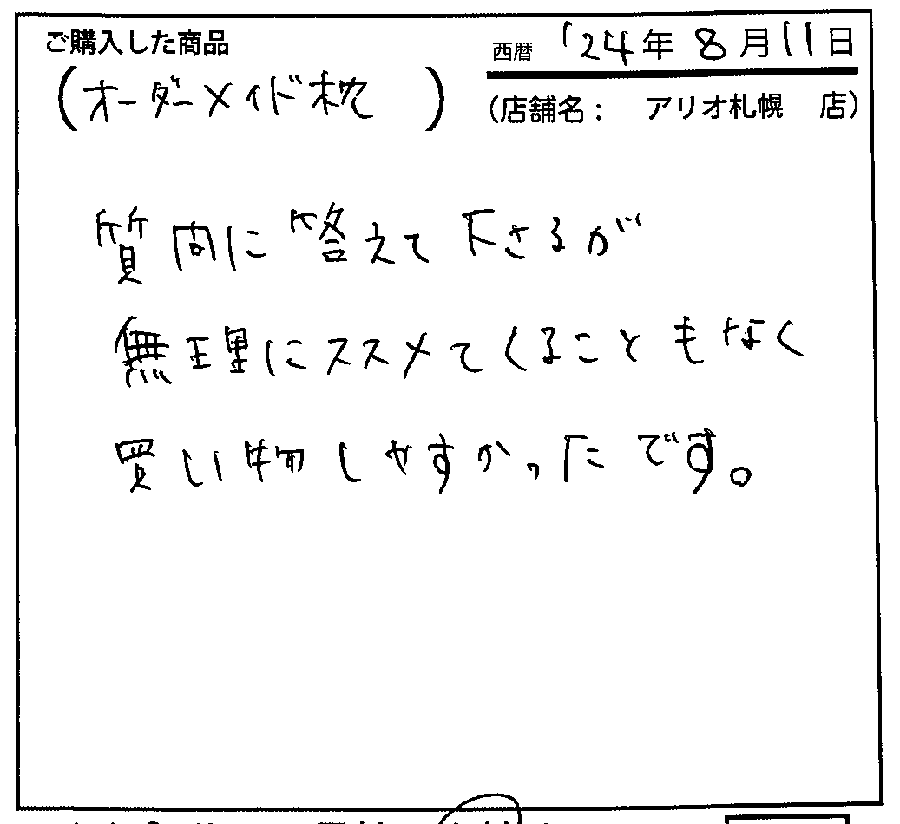 ご購入した商品
西暦 '24年 8月11日
(オーダーメイド枕 )
(店舗名: アリオ札幌 店)
質問に答えて下さるが
無理にススメてくることもなく
買い物しやすかったです。